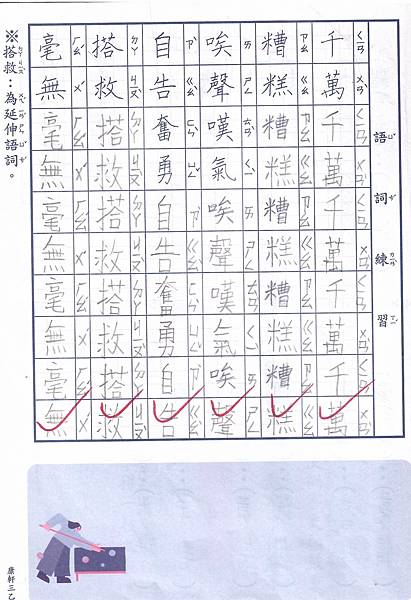 語詞練習
千萬千萬千萬千萬千萬
糟糕糟糕糟糕糟糕糟糕
唉聲嘆氣唉聲嘆氣唉聲
自告奮勇自告奮勇自告
搭救搭救搭救搭救搭救
毫無毫無毫無毫無毫無
※搭救：為延伸語詞。
康軒三乙